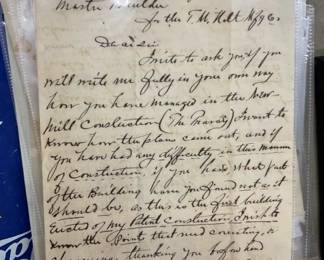 Master Builder
for the T. M. Holt Mfg Co.
Dear sir
I write to ask you if you
will write me fully in your own way
how you have managed in the New
Mill Construction (The Travora) I want to
Know how the plan came out, and if
you have had any difficulty in this manner
of Construction, if you have what part
of the Building have you found not as it
should be, as this is the first building
Erected of my Patent Construction, I wish to
Know the Point that need correcting, or
thanking you before hand